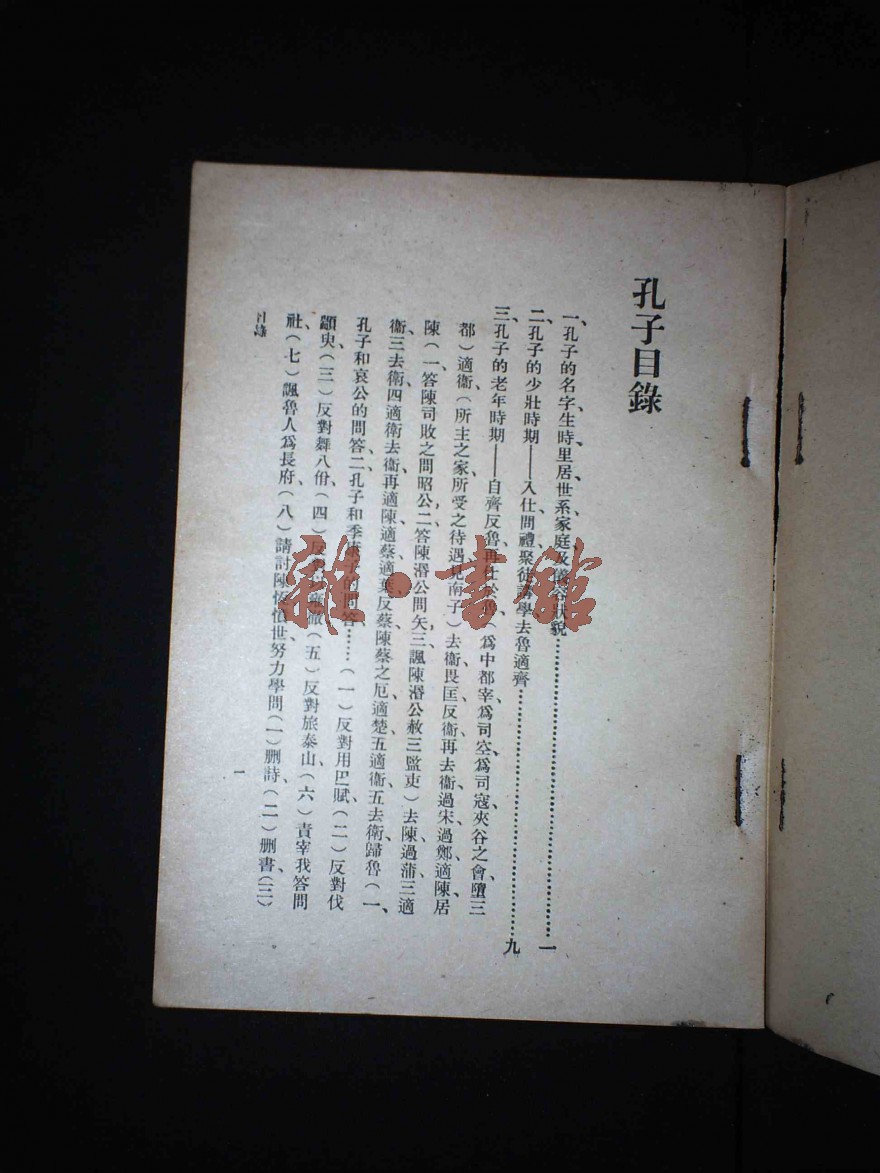 孔子目錄
一、孔子的名字、生時、里居、世系、家庭及儀容狀貌……一
二、孔子的少壯時期——入仕、問禮、聚徒講學、去魯適齊……九
三、孔子的老年時期——自齊反魯、再仕於魯、(爲中都宰、爲司空、爲司寇、夾谷之會、墮三
都)適衞、(所主之家、所受之待遇、見南子、)去衞、畏匡、反衞、再去衞、過宋、過鄭、適陳、居
陳(一、答陳司敗之問昭公、二、答陳湣公問矢、三、諷陳湣公赦三監吏)去陳、過蒲、三適
衞、三去衞、四適衞、去衞、再適陳、適蔡、適葉、反蔡、陳蔡之厄、適楚、五適衞、五去衞、歸魯(一、
孔子和哀公的問答二、孔子和季康 的問答……(一)反對用田賦、(二)反對伐
顓臾、(三)反對舞八佾(四)反對 雍徹(五)反對旅泰山、(六)責宰我答問
社、(七)諷魯人爲長府、(八)請討陳恆、 世努力學問(一)删詩、(二)删書、(三)
目錄
一
雜·書館